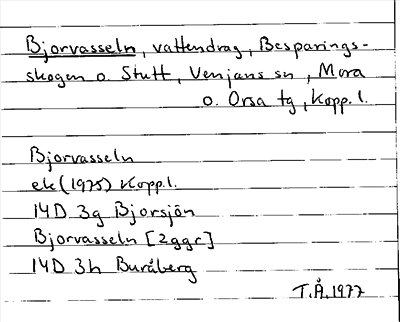 Bjorvasseln, vattendrag, Besparings-
skogen o. Stutt, Venjans sn, Mora
o. Orsa tg, Kopp. l.
Bjorvasseln
ek (1975) Kopp. l.
14D 3g Bjorsjön
Bjorvasseln [2ggr]
14D 3h Buråberg
T.Å. 1977